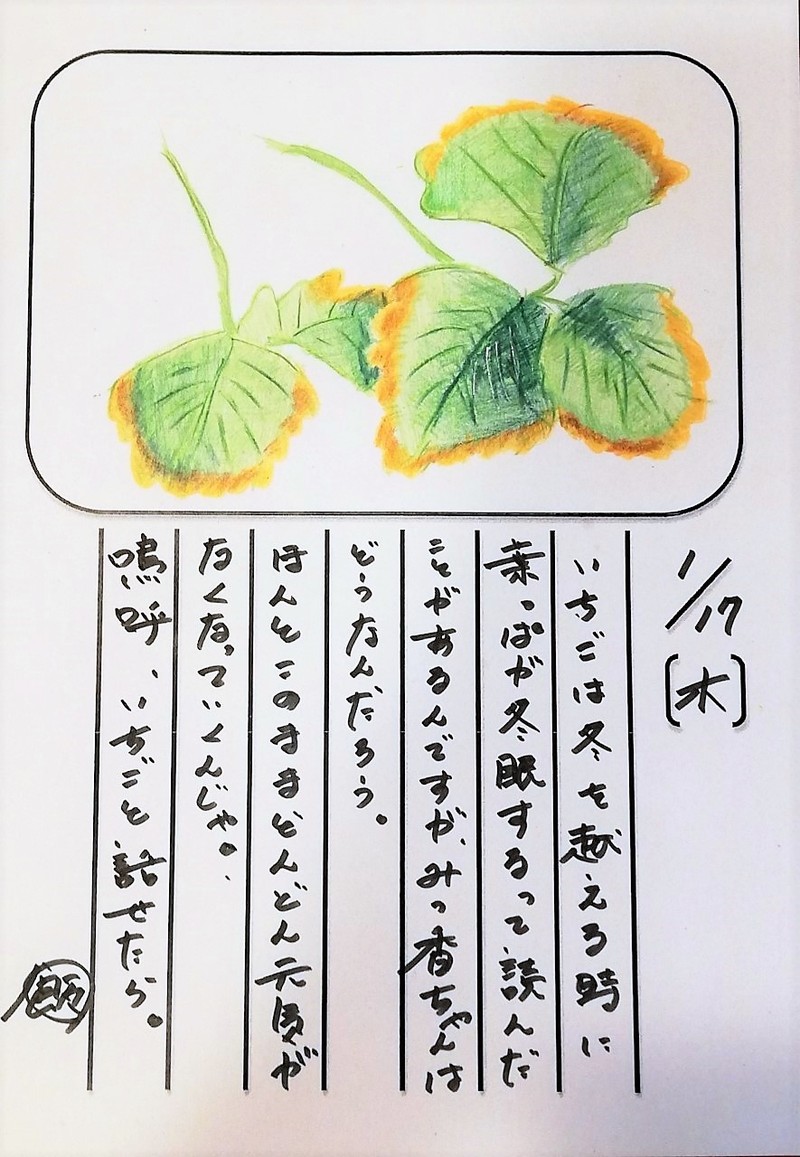 1/17〔水〕
いちごは冬を越える時に
葉っぱが冬眠するって読んだ
ことがあるんですが、みつ香ちゃんは
どうなんだろう。
ほんとこのままどんどん元気が
なくなっていくんじゃ。、
嗚呼、いちごと話せたら。